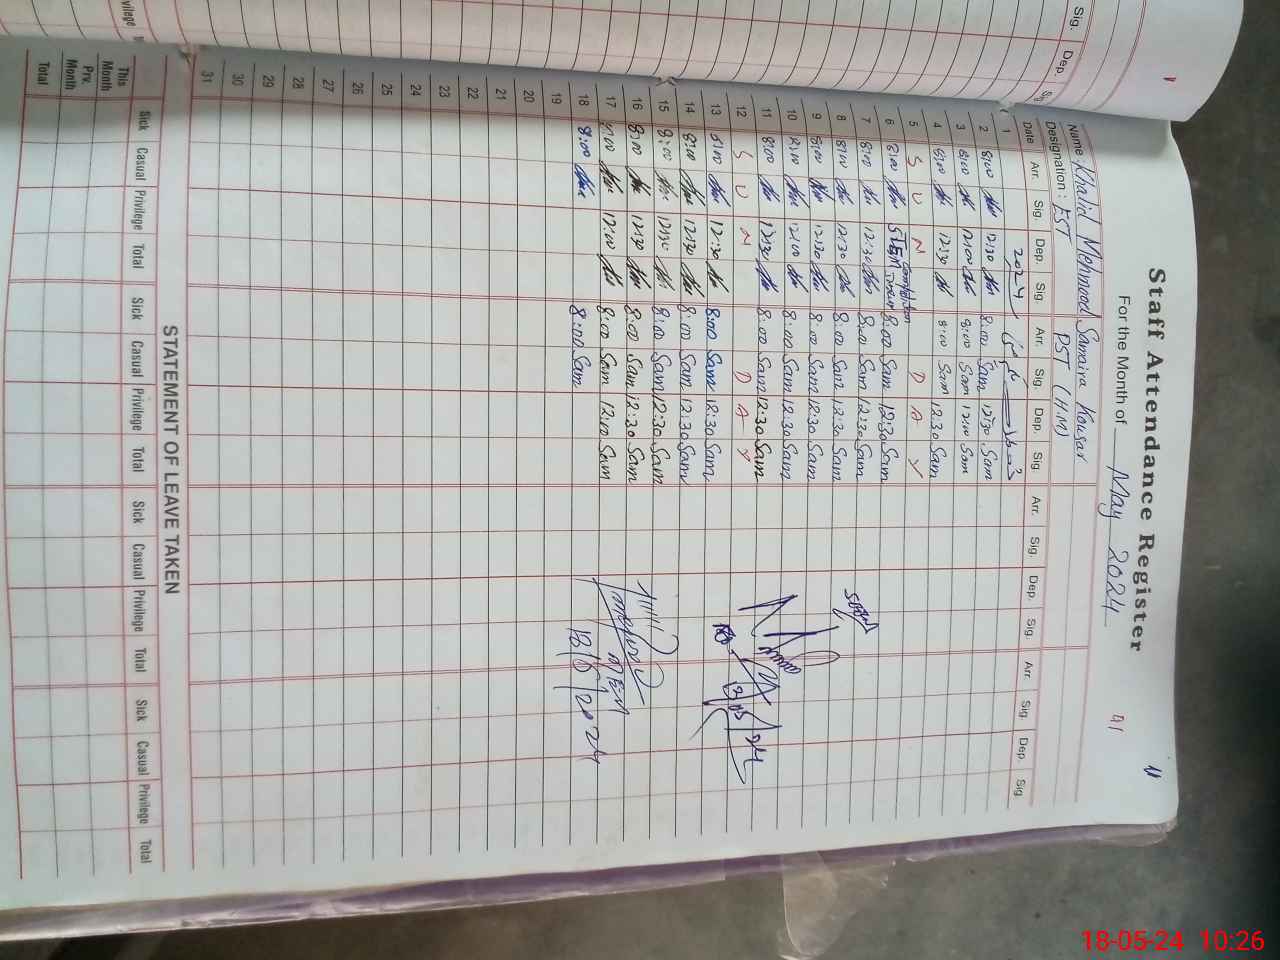 Staff Attendance Register
For the Month of May 2024
Name Khalid Mehmood Samaira Kousar
Designation : EST PST (H.M)
Date Arr. Sig. Dep. Sig. Arr. Sig. Dep. Sig. Arr. Sig. Dep. Sig. Arr. Sig. Dep. Sig.
1 2024
2 8:00 12:30 8:00 Sam 12:30 Sam
3 8:00 12:00 8:00 Sam 12:00 Sam
4 8:00 12:30 8:00 Sam 12:30 Sam
5 S U N D A Y
6 8:00 STEM Competition 8:00 Sam 12:30 Sam
7 8:00 12:30 8:00 Sam 12:30 Sam
8 8:00 12:30 8:00 Sam 12:30 Sam
9 8:00 12:30 8:00 Sam 12:30 Sam
10 8:00 12:00 8:00 Sam 12:30 Sam
11 8:00 12:30 8:00 Sam 12:30 Sam
12 S U N D A Y
13 8:00 12:30 8:00 Sam 12:30 Sam
14 8:00 12:30 8:00 Sam 12:30 Sam
15 8:00 12:30 8:00 Sam 12:30 Sam
16 8:00 12:30 8:00 Sam 12:30 Sam
17 8:00 12:00 8:00 Sam 12:00 Sam
18 8:00 8:00 Sam
19
20
21
22
23
24
25
26
27
28
29
30
31
STATEMENT OF LEAVE TAKEN
Sick Casual Privilege Total Sick Casual Privilege Total Sick Casual Privilege Total Sick Casual Privilege Total
This Month
Prv. Month
Total
Sig. Dep.
18-05-24 10:26